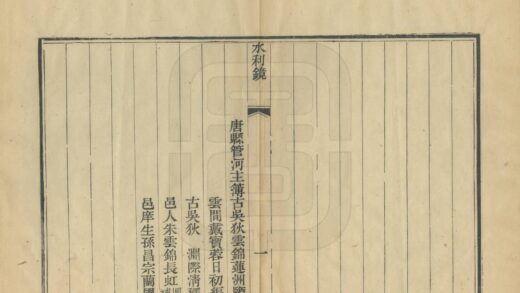 水利鏡
一
唐縣管河主簿古吳狄雲錦蓮洲
雲間戴寶蓉日初編
古吳狄 淵際清
邑人朱雲錦長虹
邑庠生孫昌宗蘭